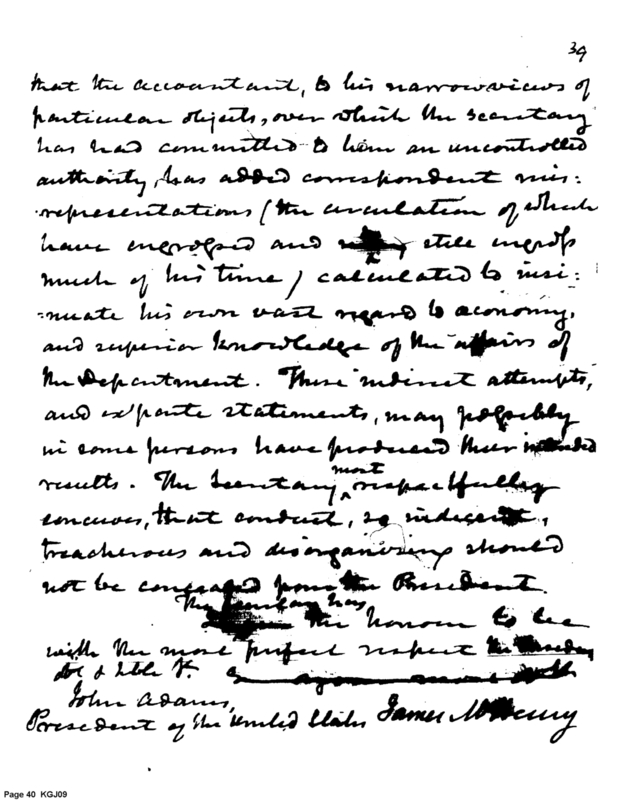 39
that the accountant, to his narrow views of
particular objects, over which the Secretary
has had committed to him an uncontrolled
authority, has added correspondent mis:
:representations (the circulation of which
have engrossed and still engross
much of his time) calculated to insi:
:nuate his own vast regard to œconomy,
and superior knowledge of the affairs of
the Department. These indirect attempts,
and ex parte statements, may possibly
in some persons have produced their intended
results. The Secretary, most respectfully
conceives, that conduct, so indecent,
treacherous and disorganizing should
not be concealed from the President.
The Secretary has
the honour to be
with the most perfect respect
John Adams,
President of the United States James McHenry
Page 40 KGJ09